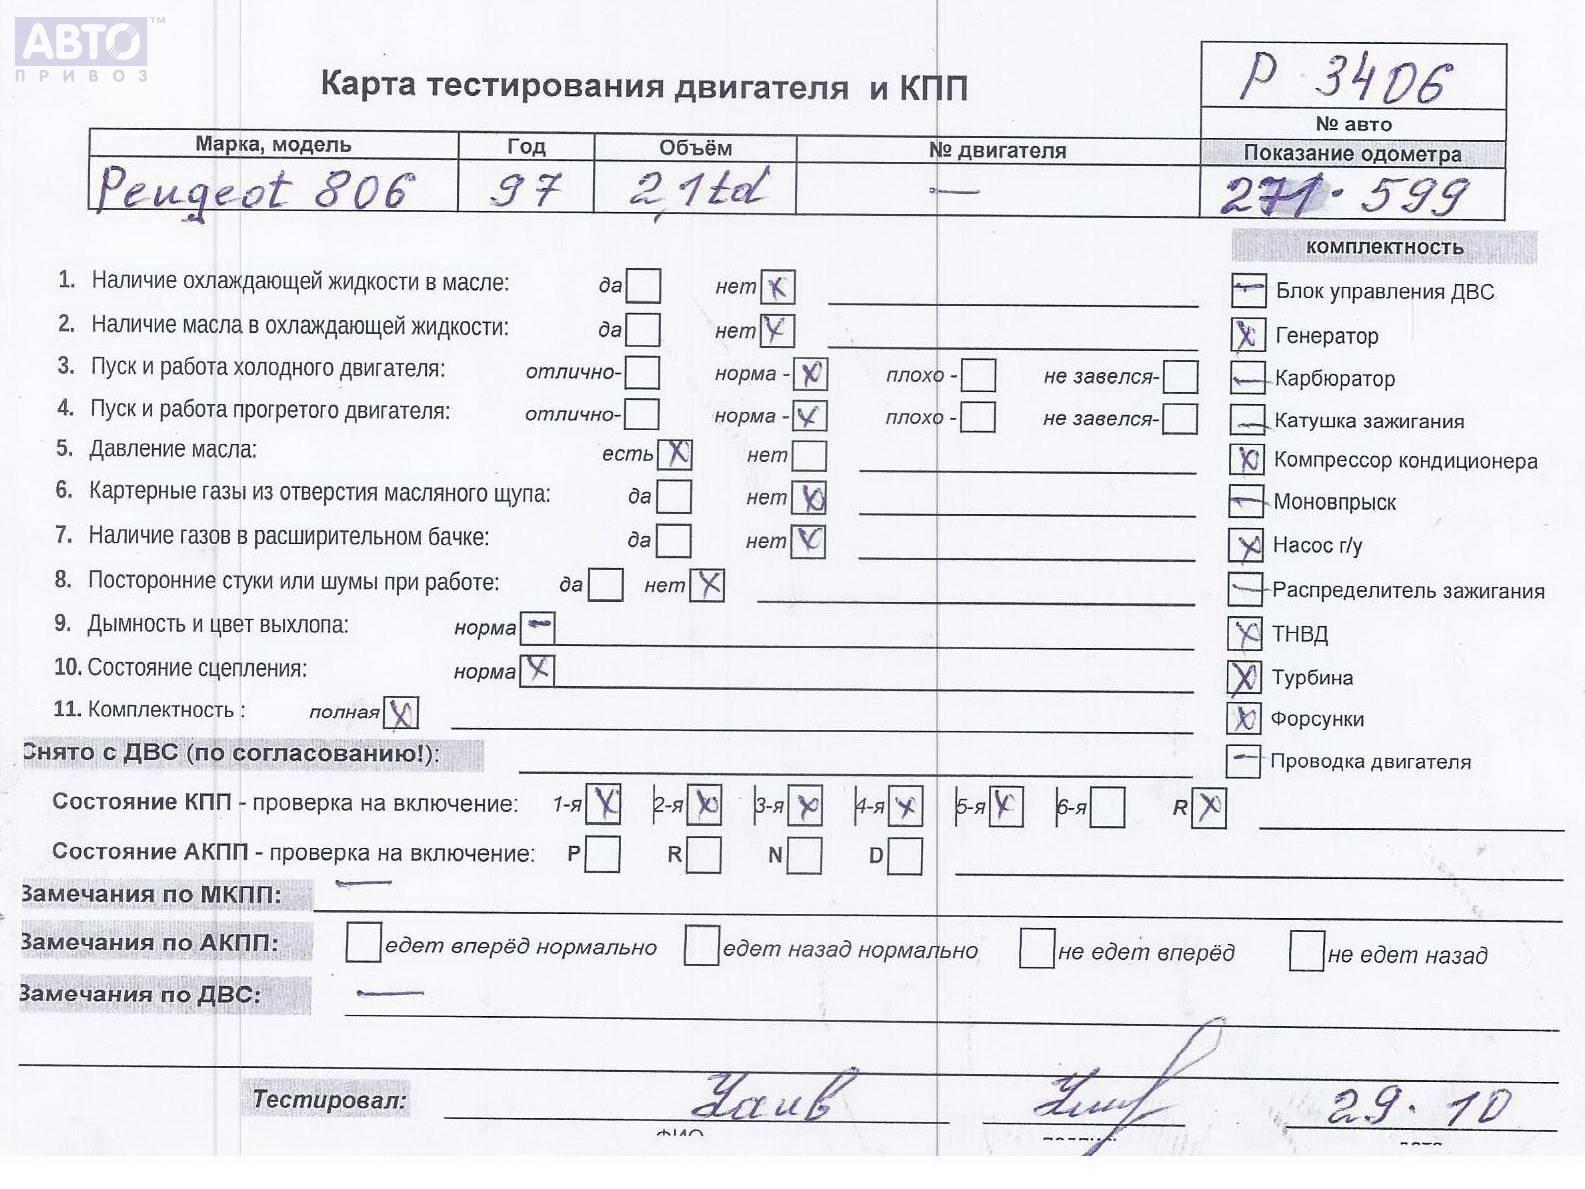 АВТО™
ПРИВОЗ
Карта тестирования двигателя и КПП
Р 3406
№ авто
Марка, модель Год Объём № двигателя Показание одометра
Peugeot 806 97 2,1td — 271·599
комплектность
1. Наличие охлаждающей жидкости в масле: да нет х
Блок управления ДВС —
2. Наличие масла в охлаждающей жидкости: да нет х
Генератор х
3. Пуск и работа холодного двигателя: отлично- норма - х плохо - не завелся-
Карбюратор —
4. Пуск и работа прогретого двигателя: отлично- норма - х плохо - не завелся-
Катушка зажигания —
5. Давление масла: есть х нет
Компрессор кондиционера х
6. Картерные газы из отверстия масляного щупа: да нет х
Моновпрыск —
7. Наличие газов в расширительном бачке: да нет х
Насос г/у х
8. Посторонние стуки или шумы при работе: да нет х
Распределитель зажигания —
9. Дымность и цвет выхлопа: норма —
ТНВД х
10. Состояние сцепления: норма х
Турбина х
11. Комплектность : полная х
Форсунки х
Снято с ДВС (по согласованию!):
Проводка двигателя —
Состояние КПП - проверка на включение: 1-я х 2-я х 3-я х 4-я х 5-я х 6-я R х
Состояние АКПП - проверка на включение: P R N D
Замечания по МКПП: —
Замечания по АКПП: едет вперёд нормально едет назад нормально не едет вперёд не едет назад
Замечания по ДВС: —
Тестировал: 29.10
ФИО